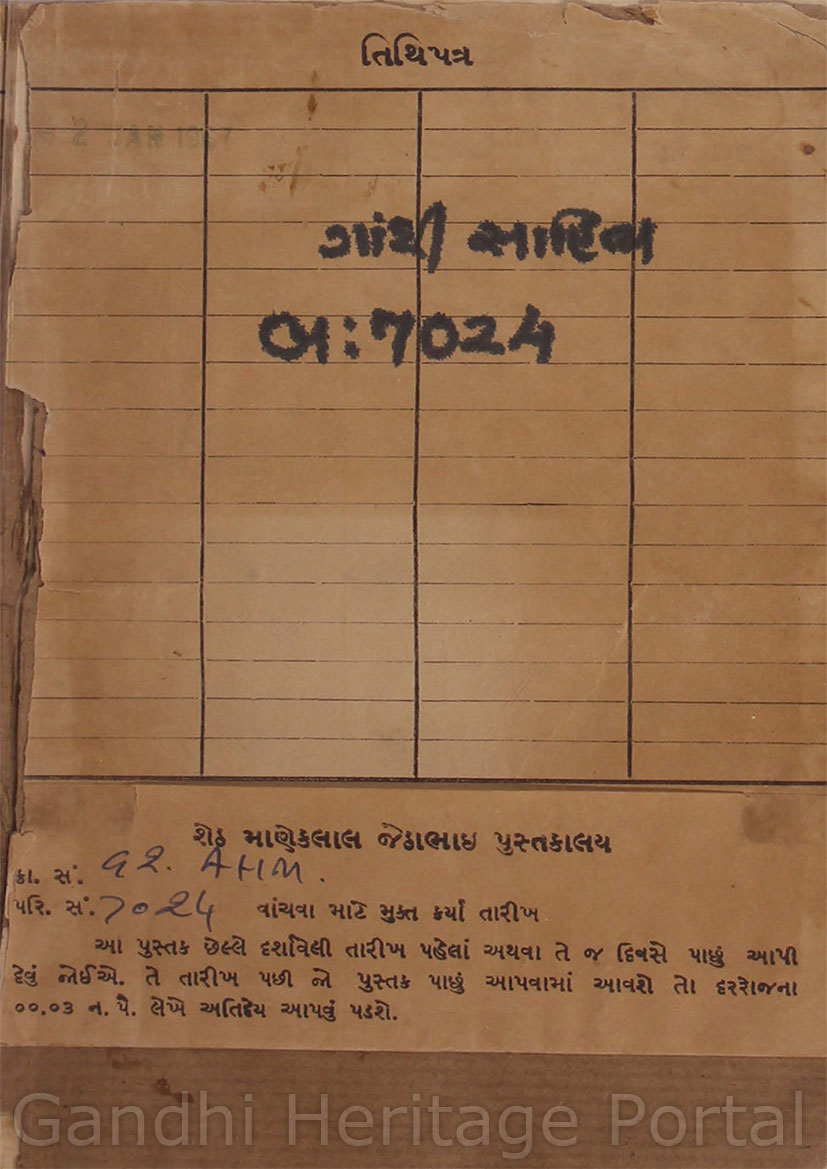 તિથિપત્ર
2 JAN 1967
ગાંધી સાહિત્ય
બ:7024
શેઠ માણેકલાલ જેઠાભાઇ પુસ્તકાલય
ક્રા. સં. 92. AHM.
પરિ. સં. 7024 વાંચવા માટે મુક્ત કર્યા તારીખ
આ પુસ્તક છેલ્લે દર્શાવેલી તારીખ પહેલાં અથવા તે જ દિવસે પાછું આપી
દેવું જોઈએ. તે તારીખ પછી જો પુસ્તક પાછું આપવામાં આવશે તો દરરોજના
૦૦.૦૩ ન. પૈ. લેખે અતિદેય આપવું પડશે.
Gandhi Heritage Portal